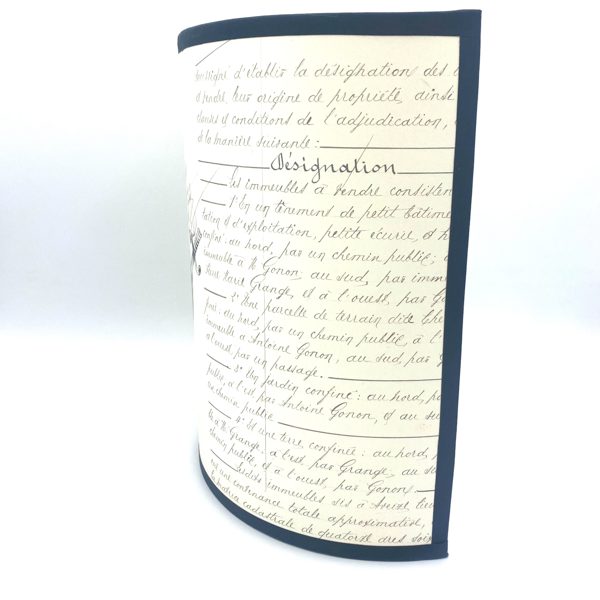 d'établir la désignation des
et vendre, leur origine de propriété, ainsi
clauses et conditions de l'adjudication,
et la manière suivante :
Désignation
Les immeubles à vendre consisten
1° En un tènement de petit bâtime
et d'exploitation, petite écurie, et
confiné : au nord, par un chemin public ;
immeuble à M. Gonon au sud, par imm
Marie Grange, et à l'ouest, par Go
2° Une parcelle de terrain dite Che
au nord, par un chemin public, à l'
immeuble à Antoine Gonon, au sud, par
à l'ouest, par un passage.
3° Un Jardin confiné : au nord, pa
public, à l'est par Antoine Gonon, et au su
chemin public
4° Et une terre, confinée : au nord,
à M. Grange, à l'est, par Grange, au su
chemin public, et à l'ouest, par Gonon.
Lesdits immeubles sis à Aveize
ont une contenance totale approximative,
la matrice cadastrale de quatorze ares soix